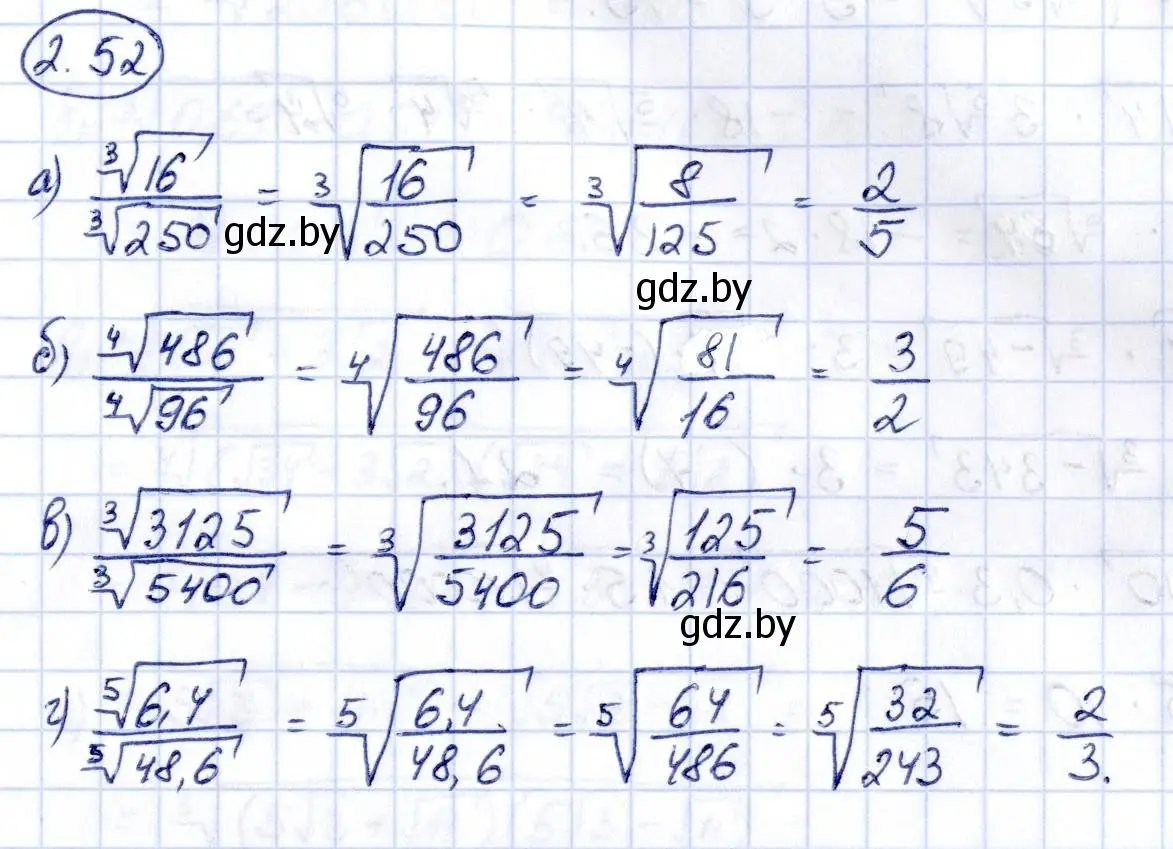 2.52
а) ∛16 / ∛250 = ∛(16/250) = ∛(8/125) = 2/5
gdz.by
gdz.by
б) ∜486 / ∜96 = ∜(486/96) = ∜(81/16) = 3/2
в) ∛3125 / ∛5400 = ∛(3125/5400) = ∛(125/216) = 5/6
gdz.by
г) ⁵√6,4 / ⁵√48,6 = ⁵√(6,4/48,6) = ⁵√(64/486) = ⁵√(32/243) = 2/3.